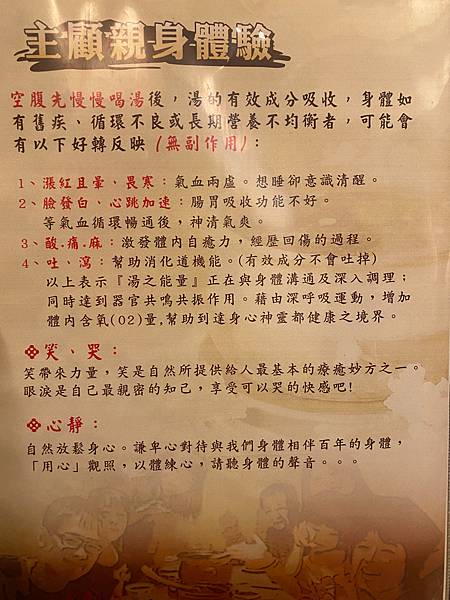 主顧親身體驗
空腹先慢慢喝湯後，湯的有效成分吸收，身體如
有舊疾、循環不良或長期營養不均衡者，可能會
有以下好轉反映(無副作用)：
1、漲紅且暈、畏寒：氣血兩虛。想睡卻意識清醒。
2、臉發白、心跳加速：腸胃吸收功能不好。
等氣血循環暢通後，神清氣爽。
3、酸.痛.麻：激發體內自癒力，經歷回傷的過程。
4、吐、瀉：幫助消化道機能。(有效成分不會吐掉)
以上表示『湯之能量』正在與身體溝通及深入調理；
同時達到器官共鳴共振作用。藉由深呼吸運動，增加
體內含氧(02)量,幫助到達身心神靈都健康之境界。
❖笑、哭：
笑帶來力量，笑是自然所提供給人最基本的療癒妙方之一。
眼淚是自己最親密的知己，享受可以哭的快感吧!
❖心靜：
自然放鬆身心。謙卑心對待與我們身體相伴百年的身體，
「用心」觀照，以體練心，請聽身體的聲音。。。